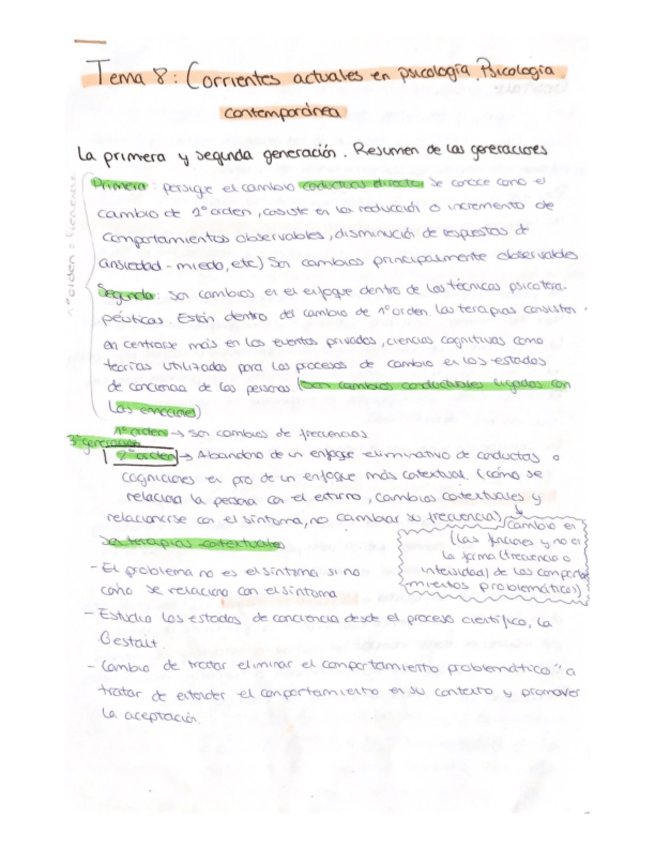 Tema 8: Corrientes actuales en psicología. Psicología
contemporánea
La primera y segunda generación. Resumen de las generaciones
Primera: persigue el cambio conductual directo se conoce como el
cambio de 1º orden, consiste en la reducción o incremento de
comportamientos observables, disminución de respuestas de
ansiedad - miedo, etc) Son cambios principalmente observables
Segunda: son cambios en el enfoque dentro de las técnicas psicotera-
péuticas. Están dentro del cambio de 1º orden. Las terapias consisten
en centrarse más en los eventos privados, ciencias cognitivas como
teorías utilizadas para los procesos de cambio en los estados
de conciencia de las personas (son cambios conductuales ligados con
las emociones)
1º orden = frecuencia
1º orden → son cambios de frecuencias
3ª generación
2º orden → Abandono de un enfoque eliminativo de conductas o
cogniciones en pro de un enfoque más contextual. (cómo se
relaciona la persona con el entorno, cambios contextuales y
relacionarse con el síntoma, no cambiar su frecuencia)
Son terapias contextuales
cambio en
(las funciones y no en
la forma (frecuencia o
intensidad) de los comporta
mientos problemáticos)
- El problema no es el síntoma si no
cómo se relaciona con el síntoma
- Estudio los estados de conciencia desde el proceso científico, la
Gestalt.
- Cambio de tratar eliminar el comportamiento problemático" a
tratar de entender el comportamiento en su contexto y promover
la aceptación.